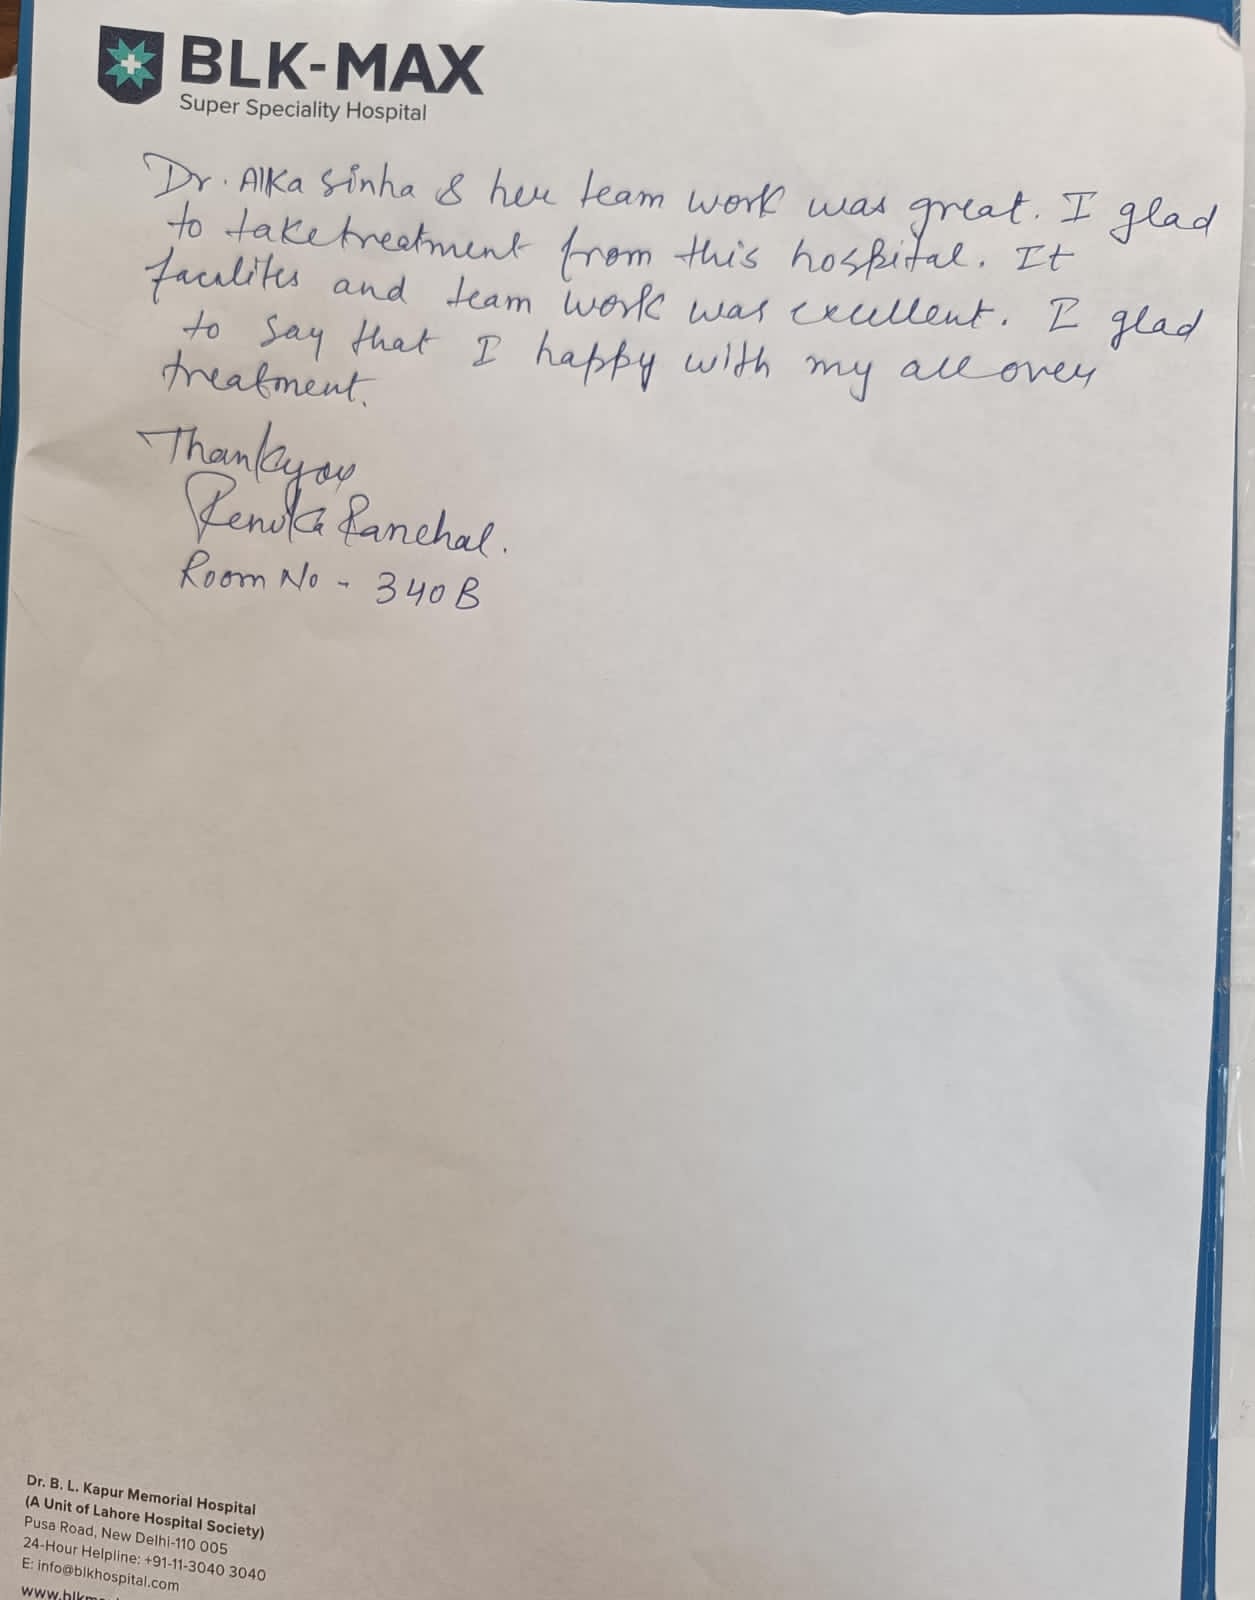 BLK-MAX
Super Speciality Hospital
Dr. Alka Sinha & her team work was great. I glad
to take treatment from this hospital. It
facilites and team work was excellent. I glad
to say that I happy with my all over
treatment.
Thankyou
Renuka Panchal.
Room No - 340B
Dr. B. L. Kapur Memorial Hospital
(A Unit of Lahore Hospital Society)
Pusa Road, New Delhi-110 005
24-Hour Helpline: +91-11-3040 3040
E: info@blkhospital.com